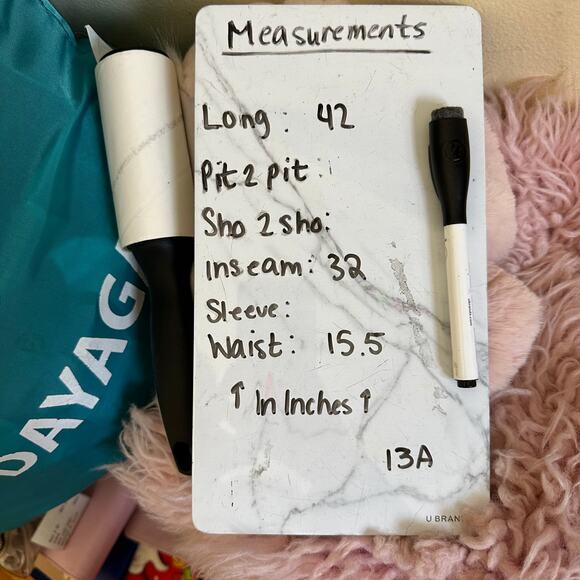 Measurements
Long: 42
Pit 2 pit:
Sho 2 sho:
inseam: 32
Sleeve:
Waist: 15.5
↑ In Inches ↑
13A
U BRAN
DAYAG